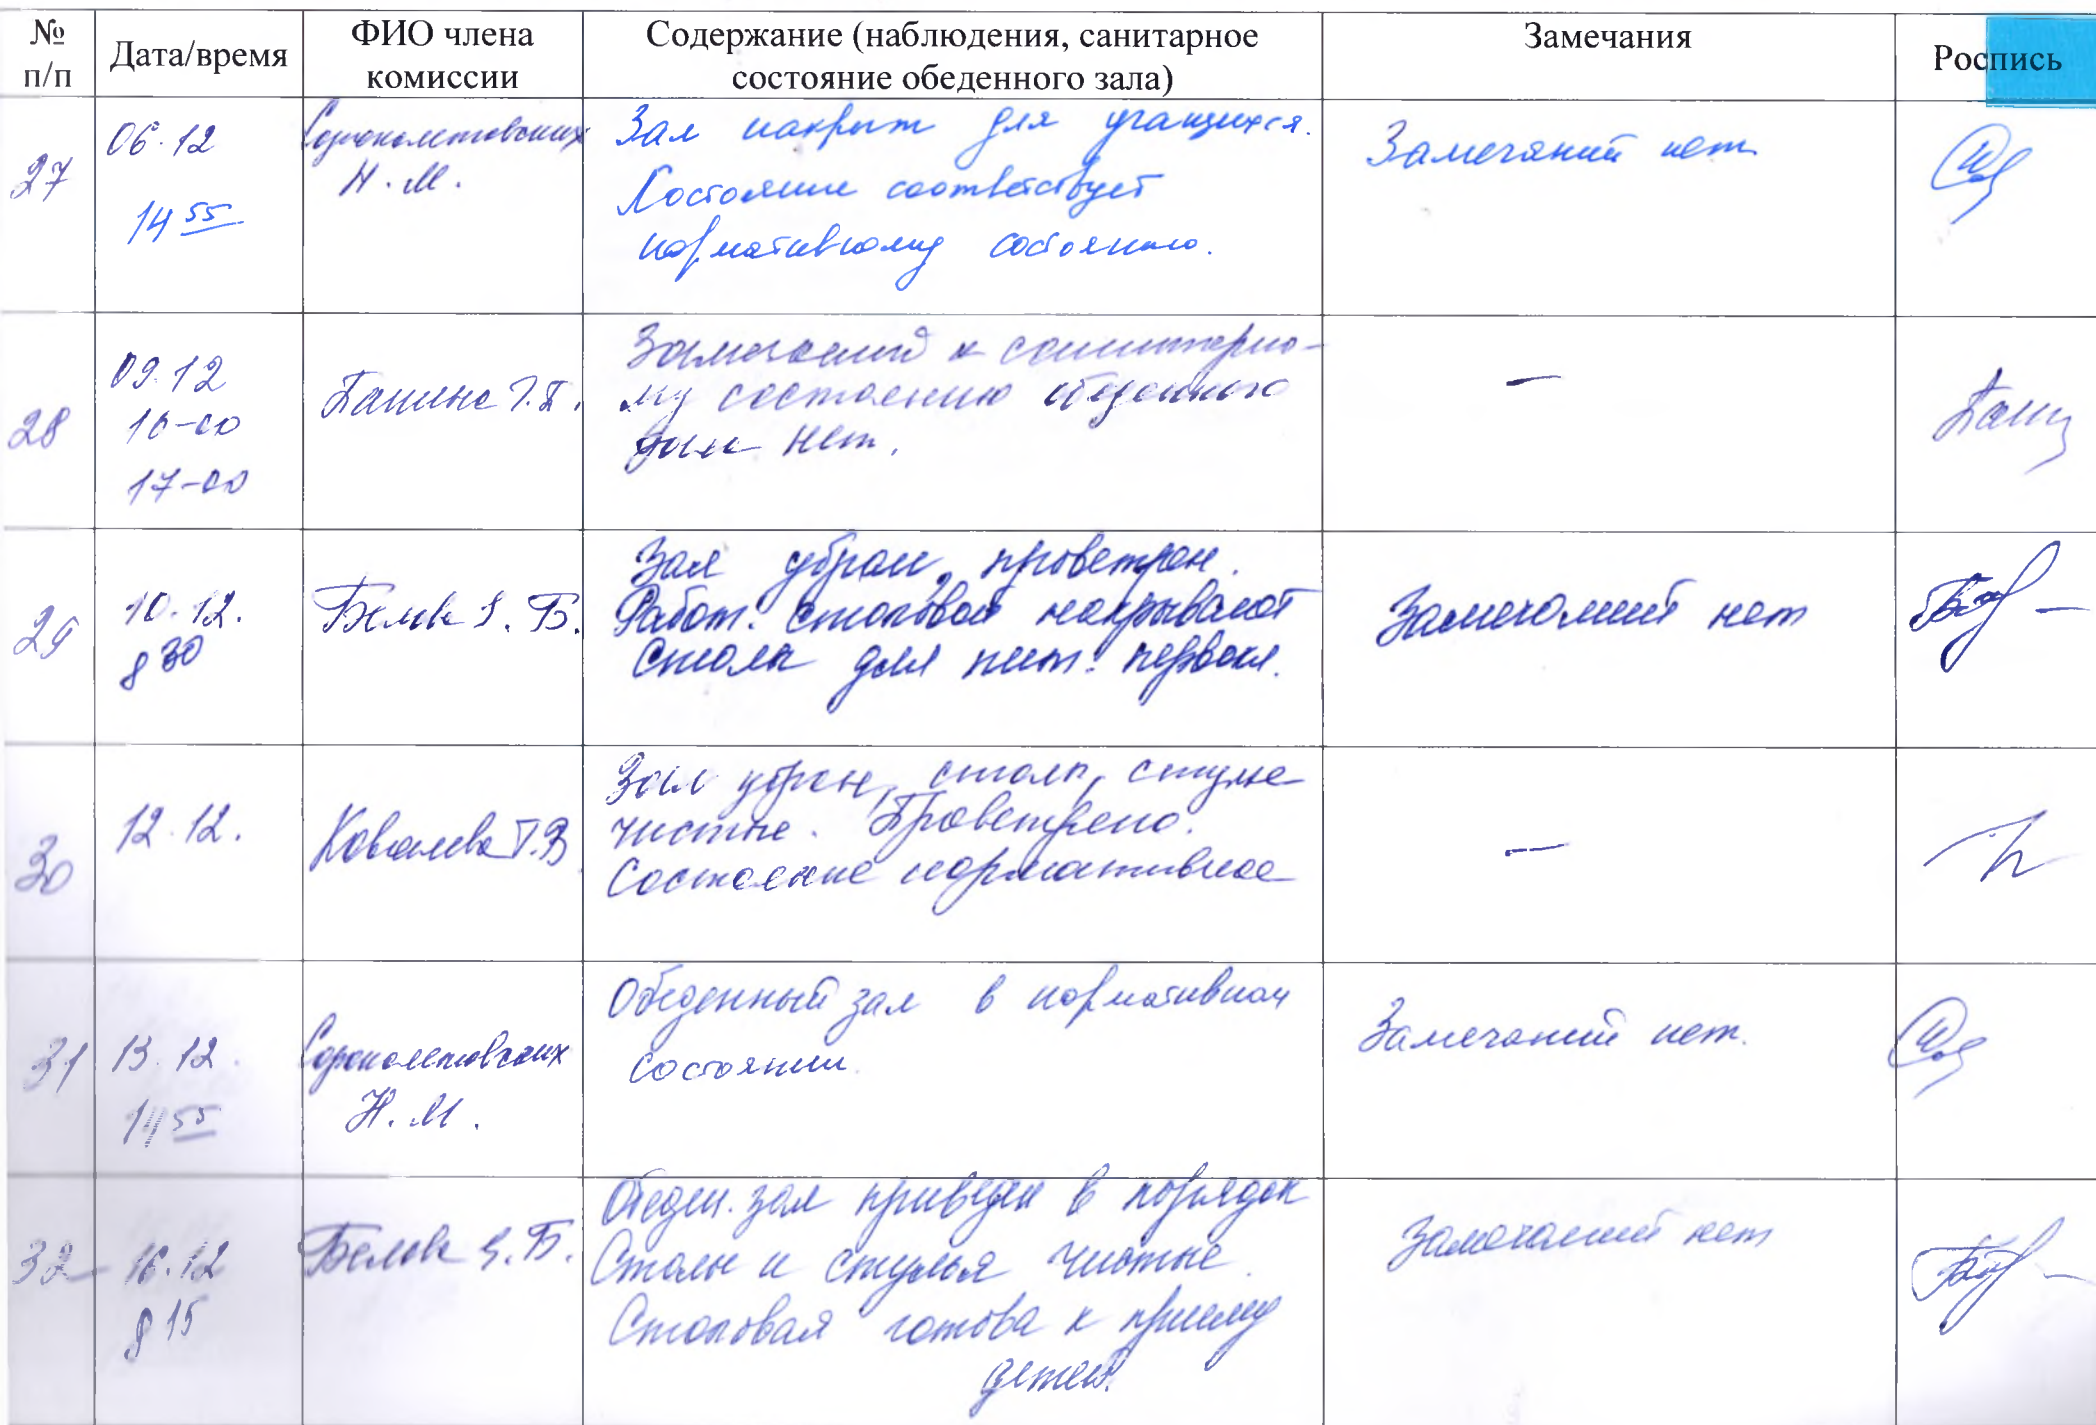 № п/п
Дата/время
ФИО члена комиссии
Содержание (наблюдения, санитарное состояние обеденного зала)
Замечания
Роспись
27
06.12
14 55
Сороколетовских
Н. М.
Зал накрыт для учащихся.
Состояние соответствует
нормативному состоянию.
Замечаний нет
28
09.12
16-00
17-00
Пашина Г.П.
Замечаний к санитарно-
му состоянию обеденного
зала нет.
—
Паш
29
10.12.
8 30
Белова Я. Б.
Зал убран, проветрен.
Работ. столовой накрывают
столы для пит. первокл.
Замечаний нет
30
12.12.
Ковалева Т.В
Зал убран, столы, стулья
чистые. Проветрено.
Состояние нормативное
—
31
13.12.
14 55
Сороколетовских
Н. М.
Обеденный зал в нормативном
состоянии
Замечаний нет.
32
16.12
8 15
Белова Я. Б.
Обеден. зал приведен в порядок
Столы и стулья чистые.
Столовая готова к приему
детей.
Замечаний нет